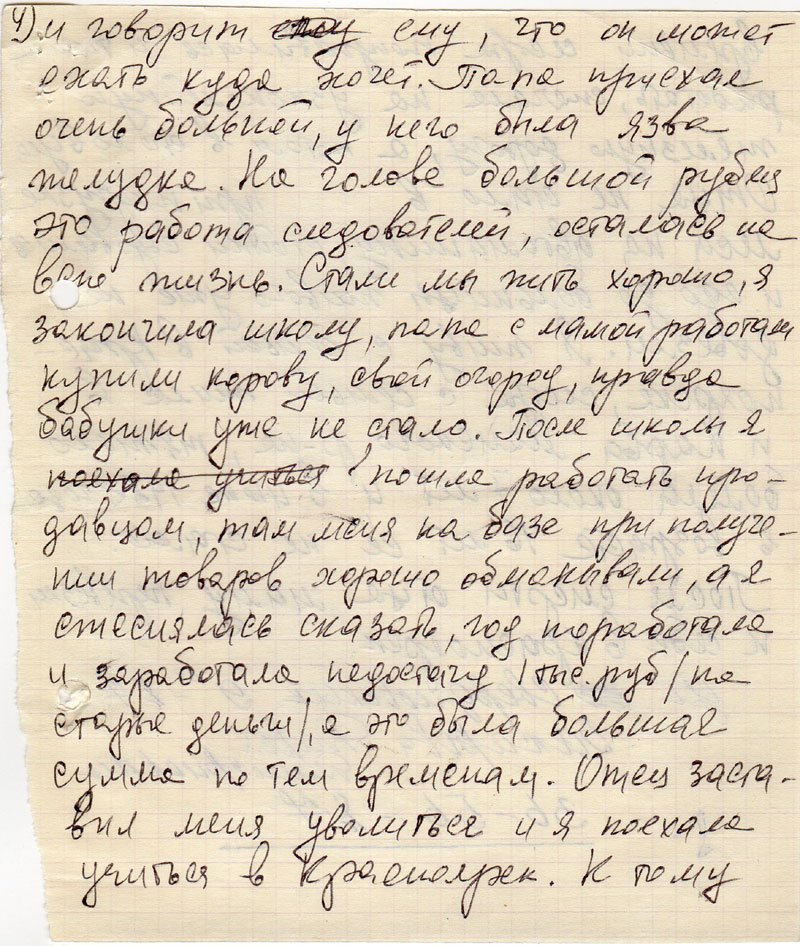 4) и говорит ему ему, что он может
ехать куда хочет. Папа приехал
очень больной, у него была язва
желудка. На голове большой рубец
это работа следователей, осталась на
всю жизнь. Стали мы жить хорошо, я
закончила школу, папа с мамой работали
купили корову, свой огород, правда
бабушки уже не стало. После школы я
поехала учиться пошла работать про-
давцом, там меня на базе при получе-
нии товаров хорошо обманывали, а я
стеснялась сказать, год поработала
и заработала недостачу 1 тыс. руб /на
старые деньги/, а это была большая
сумма по тем временам. Отец заста-
вил меня уволиться и я поехала
учиться в Красноярск. К тому